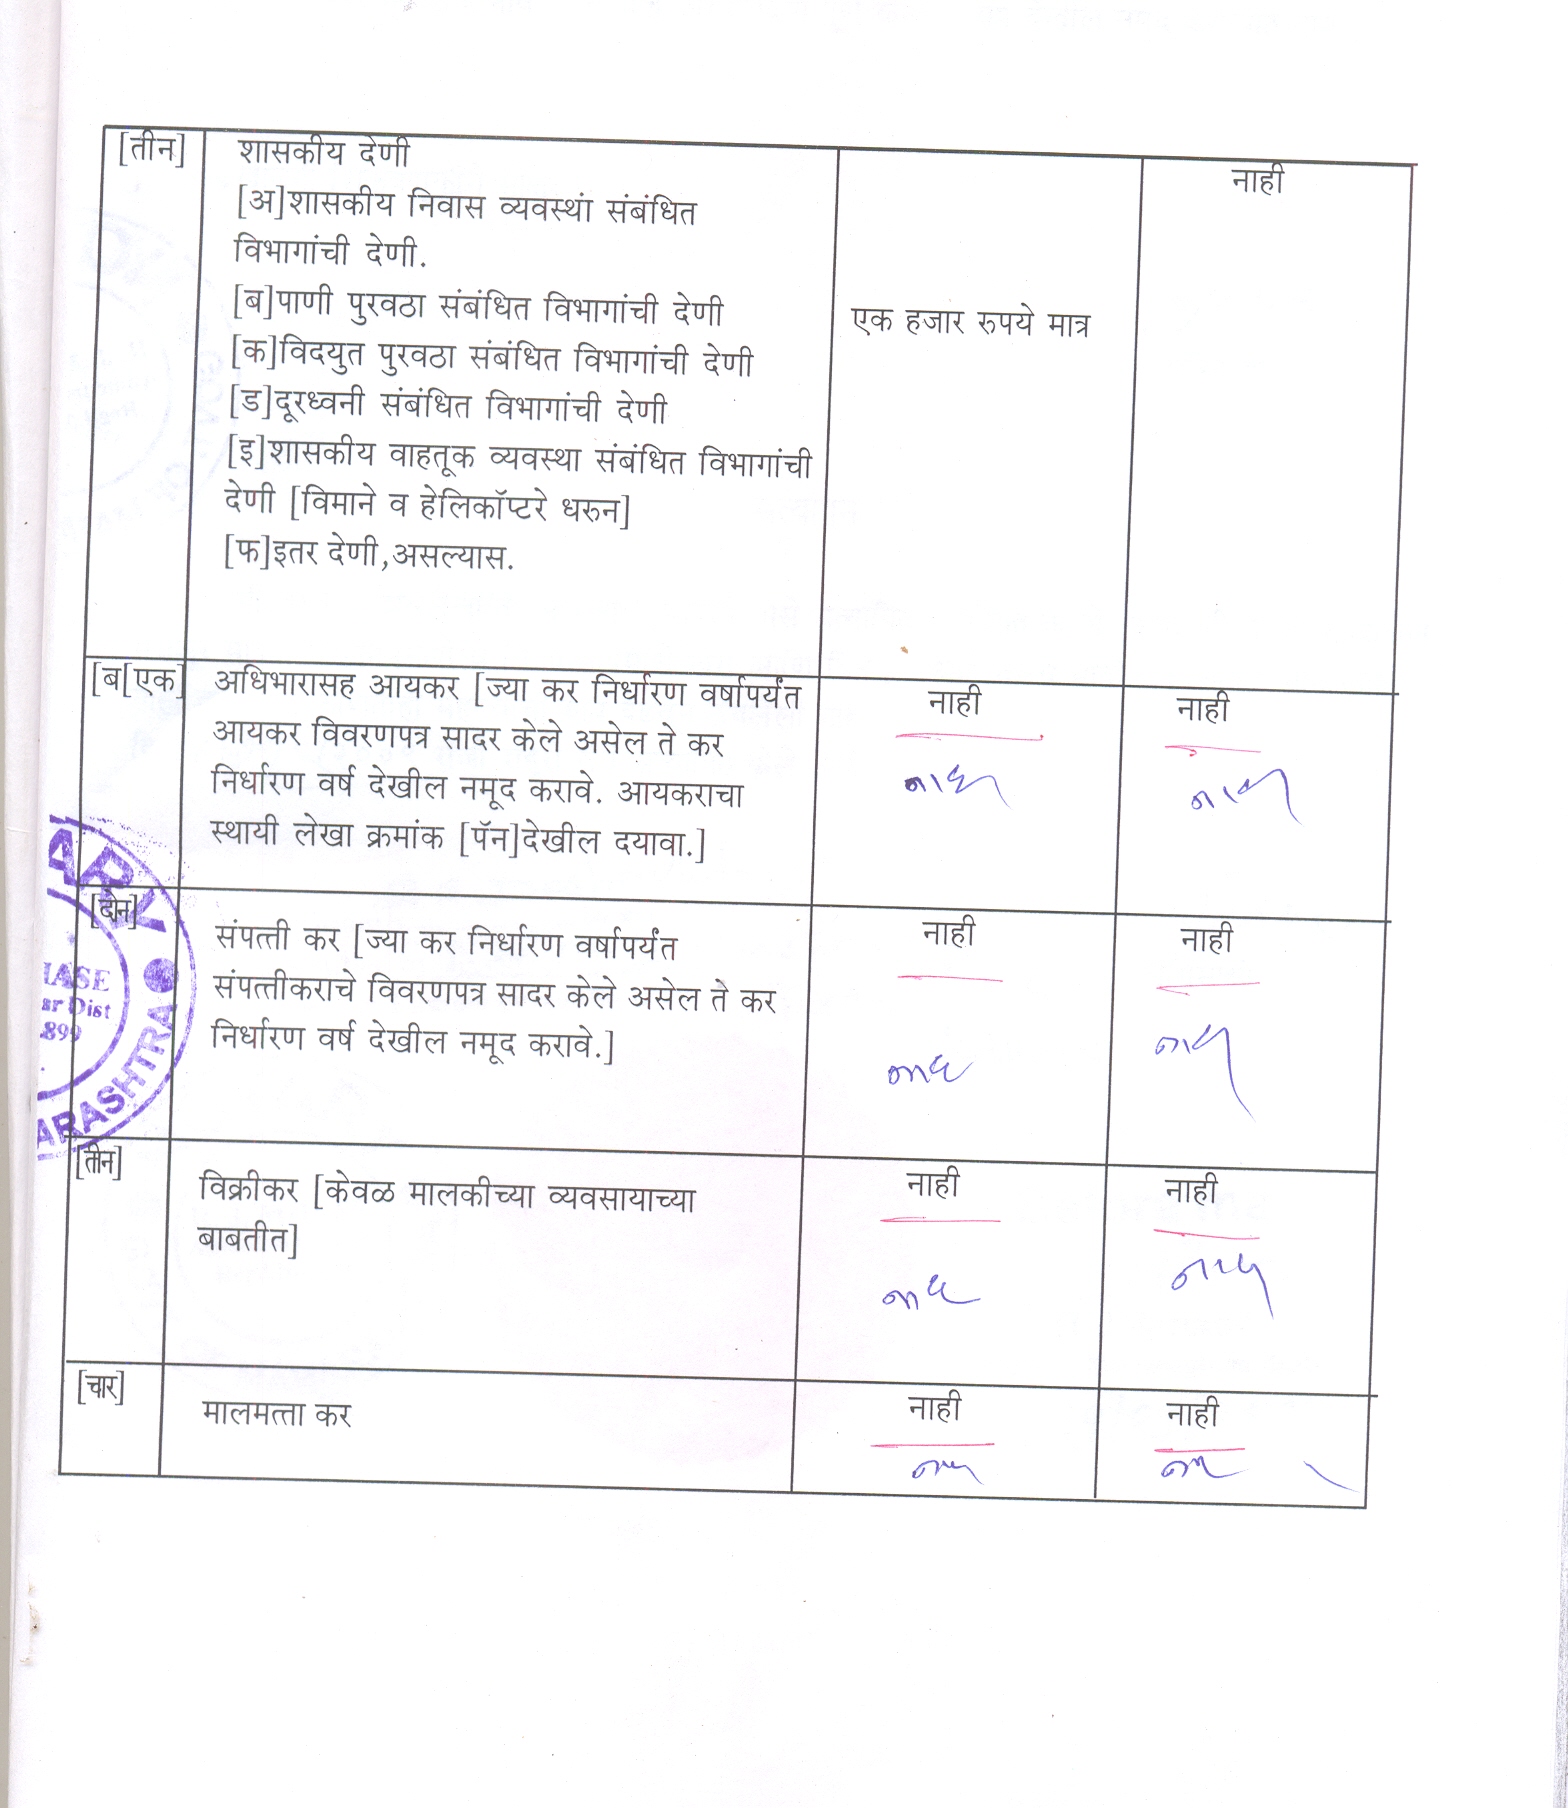 [तीन] शासकीय देणी नाही
[अ]शासकीय निवास व्यवस्थां संबंधित
विभागांची देणी.
[ब]पाणी पुरवठा संबंधित विभागांची देणी एक हजार रुपये मात्र
[क]विदयुत पुरवठा संबंधित विभागांची देणी
[ड]दूरध्वनी संबंधित विभागांची देणी
[इ]शासकीय वाहतूक व्यवस्था संबंधित विभागांची
देणी [विमाने व हेलिकॉप्टरे धरुन]
[फ]इतर देणी,असल्यास.
[ब[एक] अधिभारासह आयकर [ज्या कर निर्धारण वर्षापर्यंत नाही नाही
आयकर विवरणपत्र सादर केले असेल ते कर
निर्धारण वर्ष देखील नमूद करावे. आयकराचा नाही नाही
स्थायी लेखा क्रमांक [पॅन]देखील दयावा.]
[दोन] संपत्ती कर [ज्या कर निर्धारण वर्षापर्यंत नाही नाही
संपत्तीकराचे विवरणपत्र सादर केले असेल ते कर
निर्धारण वर्ष देखील नमूद करावे.] नाही नाही
[तीन] विक्रीकर [केवळ मालकीच्या व्यवसायाच्या नाही नाही
बाबतीत] नाही नाही
[चार] मालमत्ता कर नाही नाही
नाही नाही
ARY
HASE
Dist
899
ARASHTRA